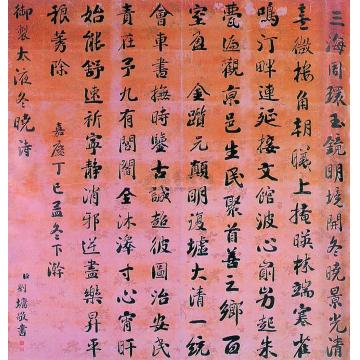 三海周環玉鏡明境開冬曉景光清
微樓角朝曦上掩暎林端寒雀
鳴汀畔連延接文館波心崱屴起朱
甍遍觀京邑生民聚首善之鄉百
室盈金蹈元顛明復墟大清一統
會車書撫時鑒古誠超彼圖治安民
責在予九有閭閻全沐澤寸心宵旰
始能舒速祈寧靜消邪逆盡樂昇平
稂莠除
嘉慶丁巳孟冬下澣
御製太液冬曉詩
臣劉墉敬書